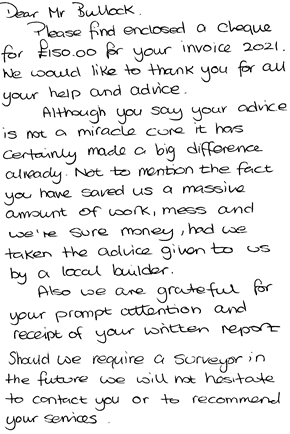 Dear Mr Bullock.
Please find enclosed a cheque
for £150.00 for your invoice 2021.
We would like to thank you for all
your help and advice.
Although you say your advice
is not a miracle cure it has
certainly made a big difference
already. Not to mention the fact
you have saved us a massive
amount of work, mess and
we're sure money, had we
taken the advice given to us
by a local builder.
Also we are grateful for
your prompt attention and
receipt of your written report
Should we require a surveyor in
the future we will not hesitate
to contact you or to recommend
your services.